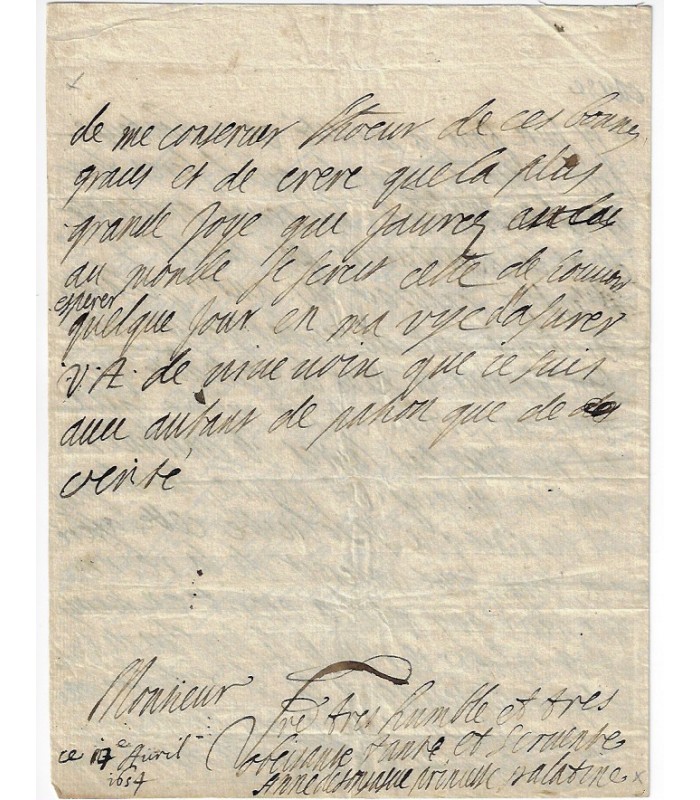 de me conserver lhoeur de ces bonnes
graces et de crere que la plus
grande joye que jaurez
au monde se seroit cette de pouvoir
esperer
quelque jour en ma vye dasurer
V. A. de vive voix que ie suis
avec autant de pasion que de
verité
Monsieur
Vre tres humble et tres
obeisante tante et servente
Anne de Gonzague princesse palatine
ce 17e Avril
1657